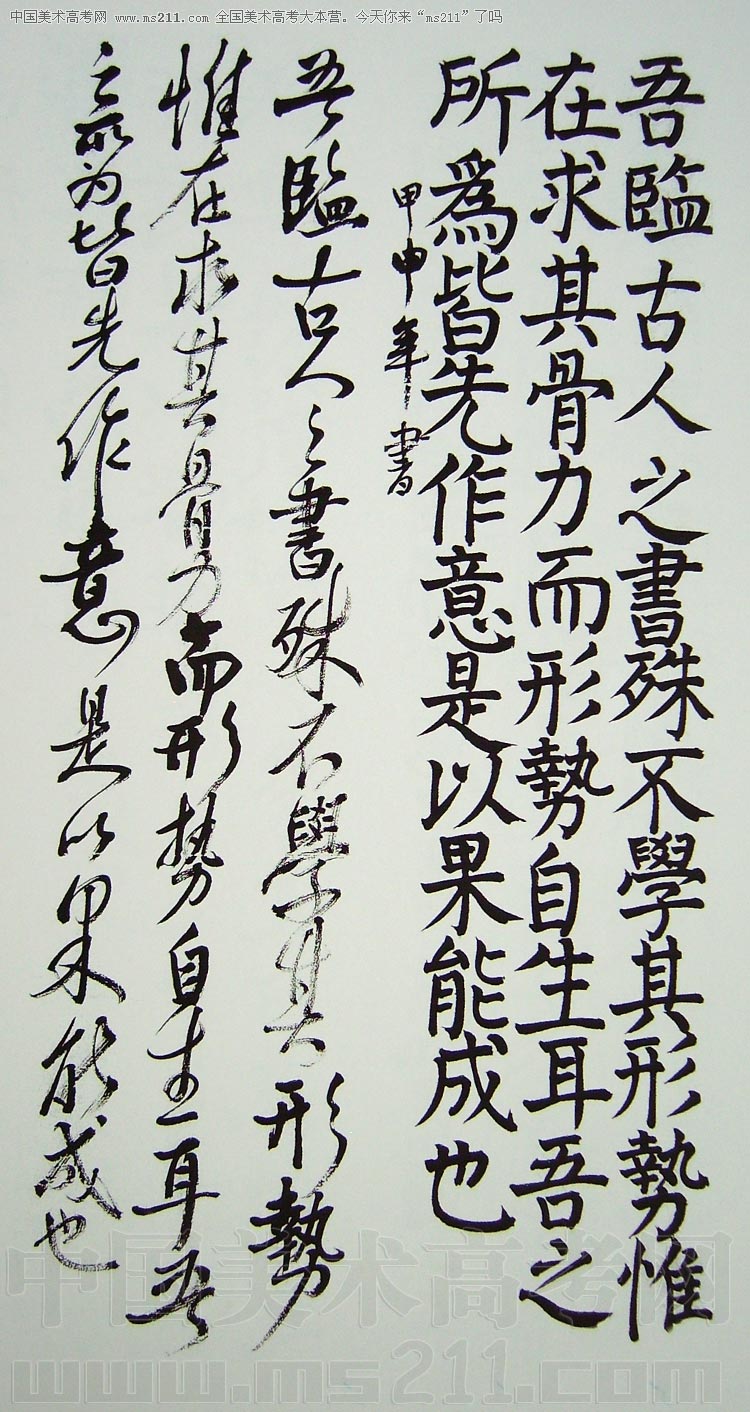 中国美术高考网 www.ms211.com 全国美术高考大本营。今天你来“ms211”了吗
吾臨古人之書殊不學其形勢惟
在求其骨力而形勢自生耳吾之
所為皆先作意是以果能成也
甲申年書
吾臨古人之書殊不學其形勢
惟在求其骨力而形势自生耳吾
之所为皆先作意是以果能成也
中国美术高考网
www.ms211.com